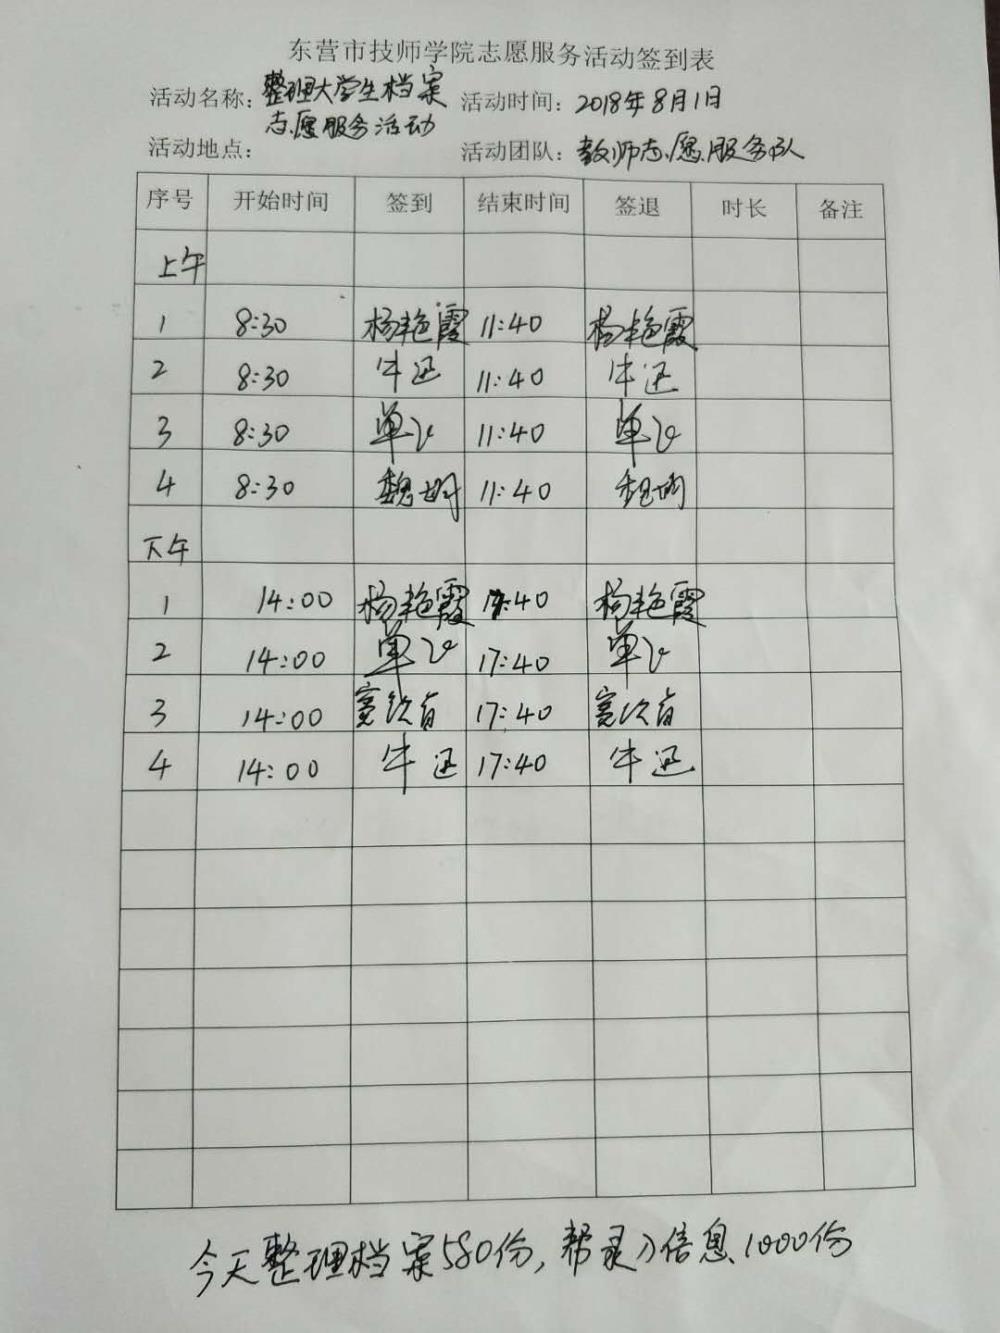 东营市技师学院志愿服务活动签到表
活动名称：整理大学生档案志愿服务活动 活动时间：2018年8月1日
活动地点： 活动团队：教师志愿服务队
序号 开始时间 签到 结束时间 签退 时长 备注
上午
1 8:30 杨艳霞 11:40 杨艳霞
2 8:30 牛迅 11:40 牛迅
3 8:30 单 11:40 单
4 8:30 魏 11:40 魏
下午
1 14:00 杨艳霞 17:40 杨艳霞
2 14:00 单 17:40 单
3 14:00 17:40
4 14:00 牛迅 17:40 牛迅
今天整理档案580份，帮录入信息1000份